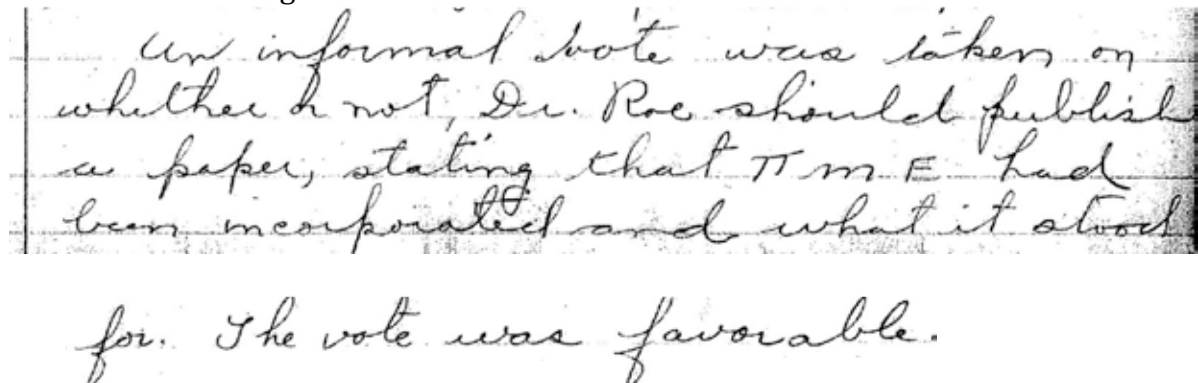 An informal vote was taken on
whether or not, Dr. Roe should publish
a paper, stating that π m E had
been incorporated and what it stood
for. The vote was favorable.